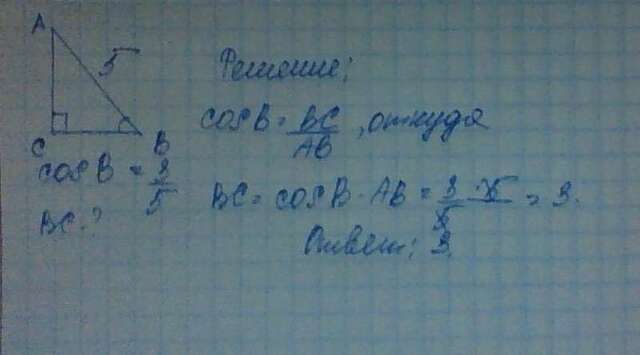 A
5
C
B
cos B = 3/5
BC - ?
Решение:
cos B = BC/AB, откуда
BC = cos B · AB = 3/5 · 5 = 3.
Ответ: 3.